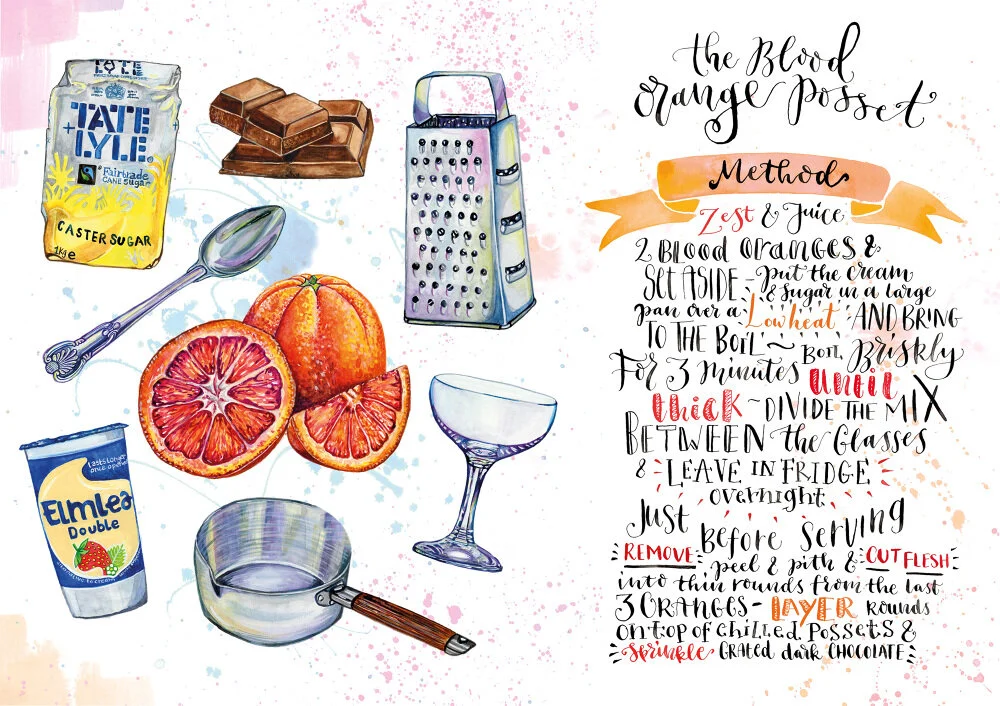 LYLE
TATE
+LYLE
Fairtrade
CANE Sugar
CASTER SUGAR
1Kg e
Lasts Longer
once opened
Elmlea
Double
the Blood
Orange Posset
Method
Zest & Juice
2 Blood oranges &
Set ASIDE - put the cream
& Sugar in a large
pan over a Low heat AND BRING
TO THE BOIL ~ BOIL Briskly
For 3 minutes until
thick ~ DIVIDE THE MIX
BETWEEN the Glasses
& LEAVE IN FRIDGE
overnight.
Just Before Serving
REMOVE peel & pith & CUT FLESH
into thin rounds from the last
3 ORANGES - LAYER Rounds
on top of chilled Possets &
Sprinkle GRATED dark CHOCOLATE